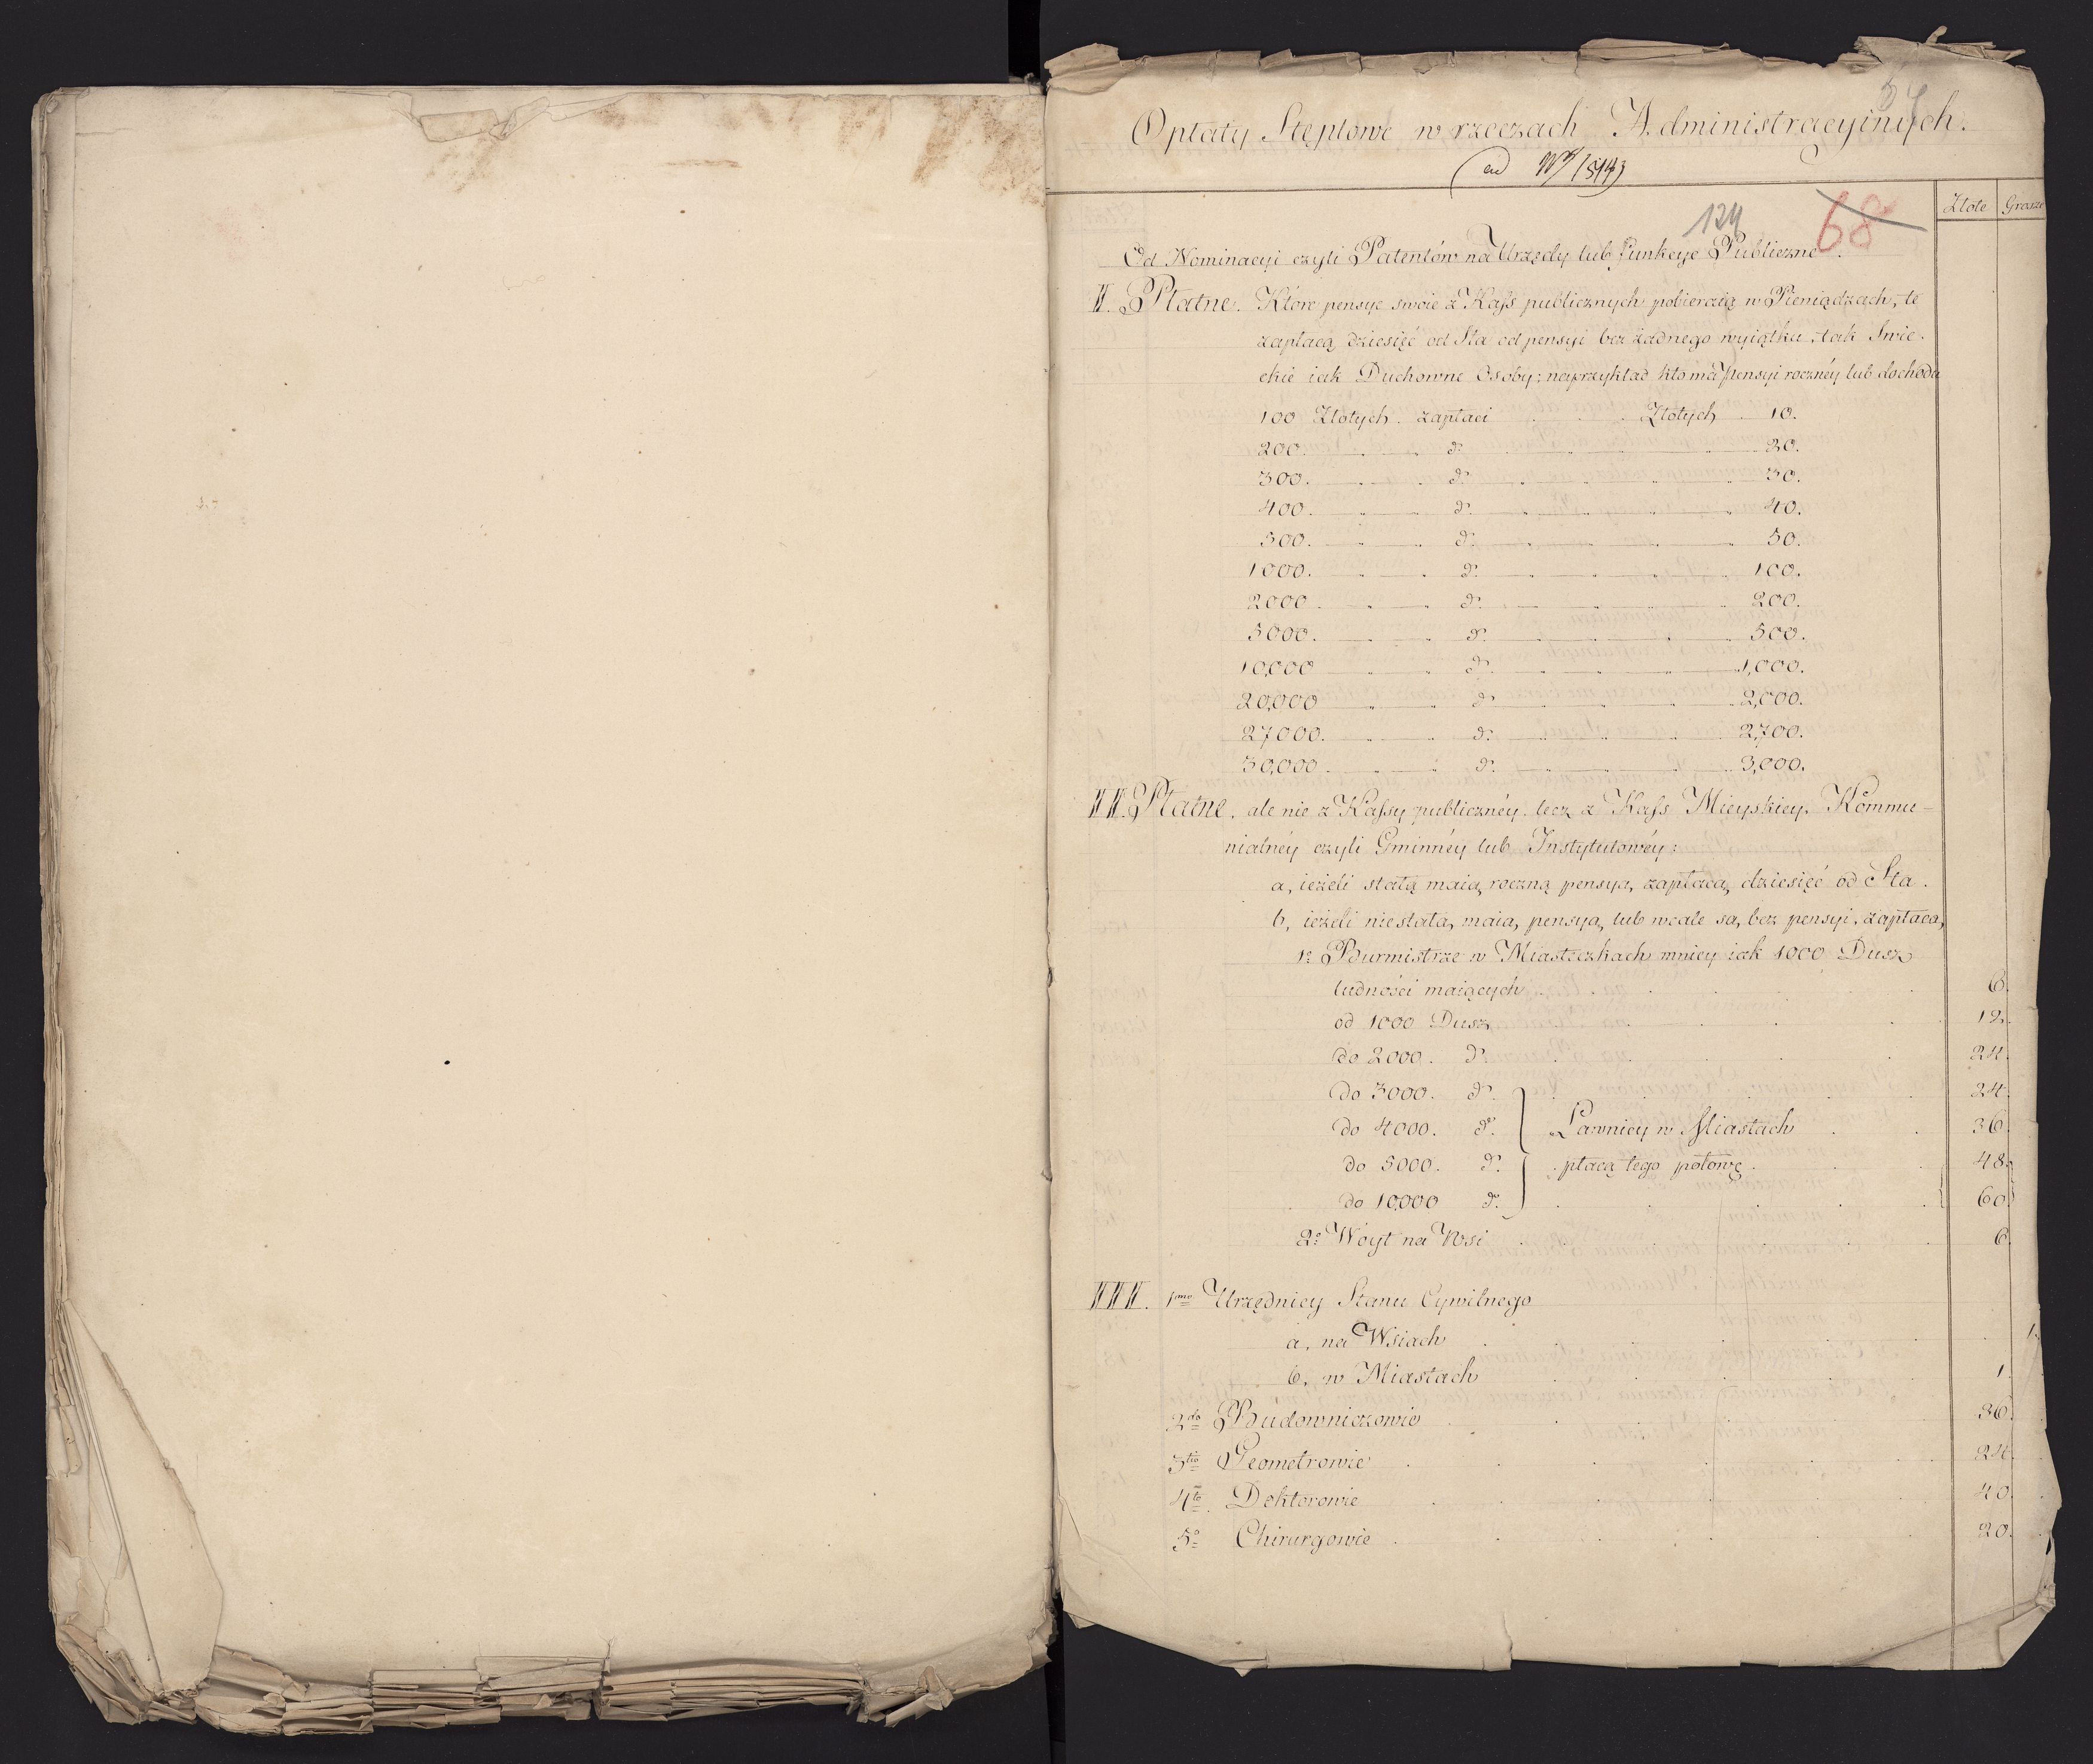 Opłaty Stęplowe w rzeczach Administracyinych.
Złote Grosze
124 68
Od Nominacyi czyli Patentów na Urzędy lub funkcye Publiczne.
I. Płatne. Które pensye swoie z Kass publicznych pobieraią w Pieniądzach, te
zapłacą dziesięć od Sta od pensyi bez żadnego wyiątku, tak Swie-
ckie iak Duchowne Osoby: naprzykład kto ma pensyi roczney lub dochodu
100 Złotych zapłaci Złotych 10.
200. do 20.
300. do 30.
400. do 40.
500. do 50.
1000. do 100.
2000. do 200.
5000. do 500.
10,000 do 1,000.
20,000 do 2,000.
27,000. do 2,700.
30,000. do 3,000.
II. Płatne. ale nie z Kassy publicznéy lecz z Kass Mieyskiey, Kommu-
nialnéy czyli Gminnéy lub Instytutowéy:
a, ieżeli stałą maią roczną pensyą, zapłacą dziesięć od Sta.
b, ieżeli niestałą maią pensyą, lub wcale są bez pensyi, zapłacą,
1o Burmistrze w Miasteczkach mniey iak 1000 Dusz
ludności maiących 6.
od 1000 Dusz 12.
do 2000. do 24.
do 3000. do 24.
do 4000. do Ławnicy w Miastach 36.
do 5000. do płacą tego połowę. 48.
do 10,000 do 60.
2o Wóyt na Wsi 6.
III. 1mo Urzędnicy Stanu Cywilnego
a, na Wsiach 1
b, w Miastach 1.
2do Budowniczowie 36.
3tio Geometrowie 24.
4to Doktorowie 40.
5o Chirurgowie 20.